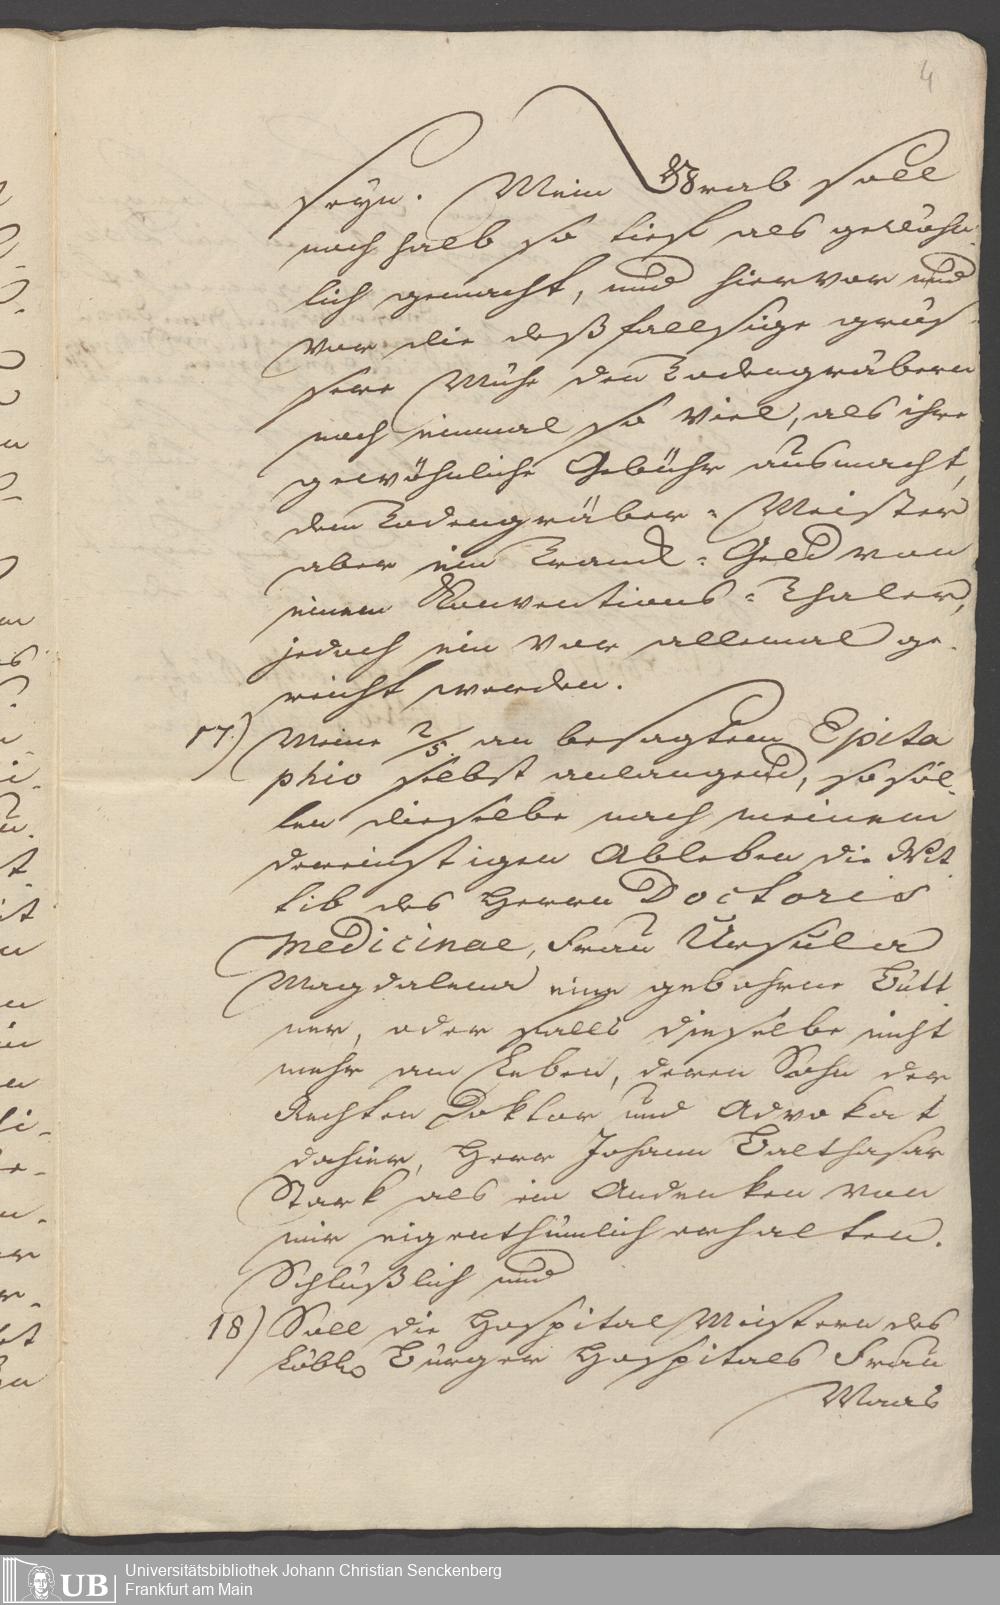 4
seyn. Mein Grab soll
noch halb so tief als gewöhn-
lich gemacht, und hiervor und
vor die deßfallsige größ-
sere Mühe den Todengräbern
noch einmal so viel, als ihre
gewöhnliche Gebühr ausmacht,
dem Todengräber-Meister
aber ein Trank-Geld von
einem Konventions-Thaler,
jedoch ein vor allemal ge-
reicht werden.
17.) Meine 2/5. an besagtem Epita
phio selbst anlangend, so sol-
len dieselbe nach meinem
dereinstigen Ableben die Wit
tib des Herrn Doctoris
Medicinae, Frau Ursula
Magdalena eine gebohrne Bütt
ner, oder falls dieselbe nicht
mehr am Leben, deren Sohn der
Rechten Doktor und Advokat
dahier, Herr Johann Balthasar
Stark als ein Andenken von
mir eigenthümlich erhalten.
Schlüßlich und
18) Soll die Hospital Meistern des
löbl. Bürger Hospitals Frau
Maas
Universitätsbibliothek Johann Christian Senckenberg
Frankfurt am Main
UB